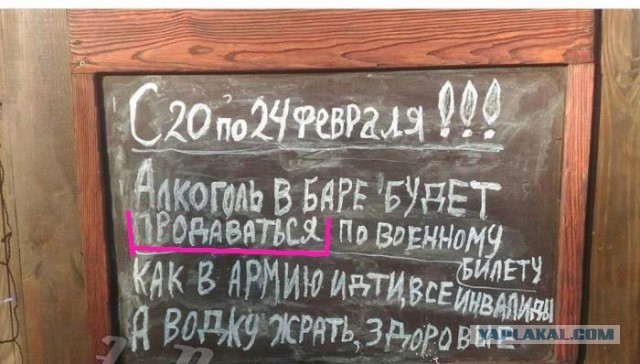 С 20 по 24 ФЕВРАЛЯ !!!
АЛКОГОЛЬ В БАРЕ БУДЕТ
ПРОДАВАТЬСЯ ПО ВОЕННОМУ
БИЛЕТУ
КАК В АРМИЮ ИДТИ, ВСЕ ИНВАЛИДЫ
А ВОДКУ ЖРАТЬ, ЗДОРОВЫЕ
YAPLAKAL.COM